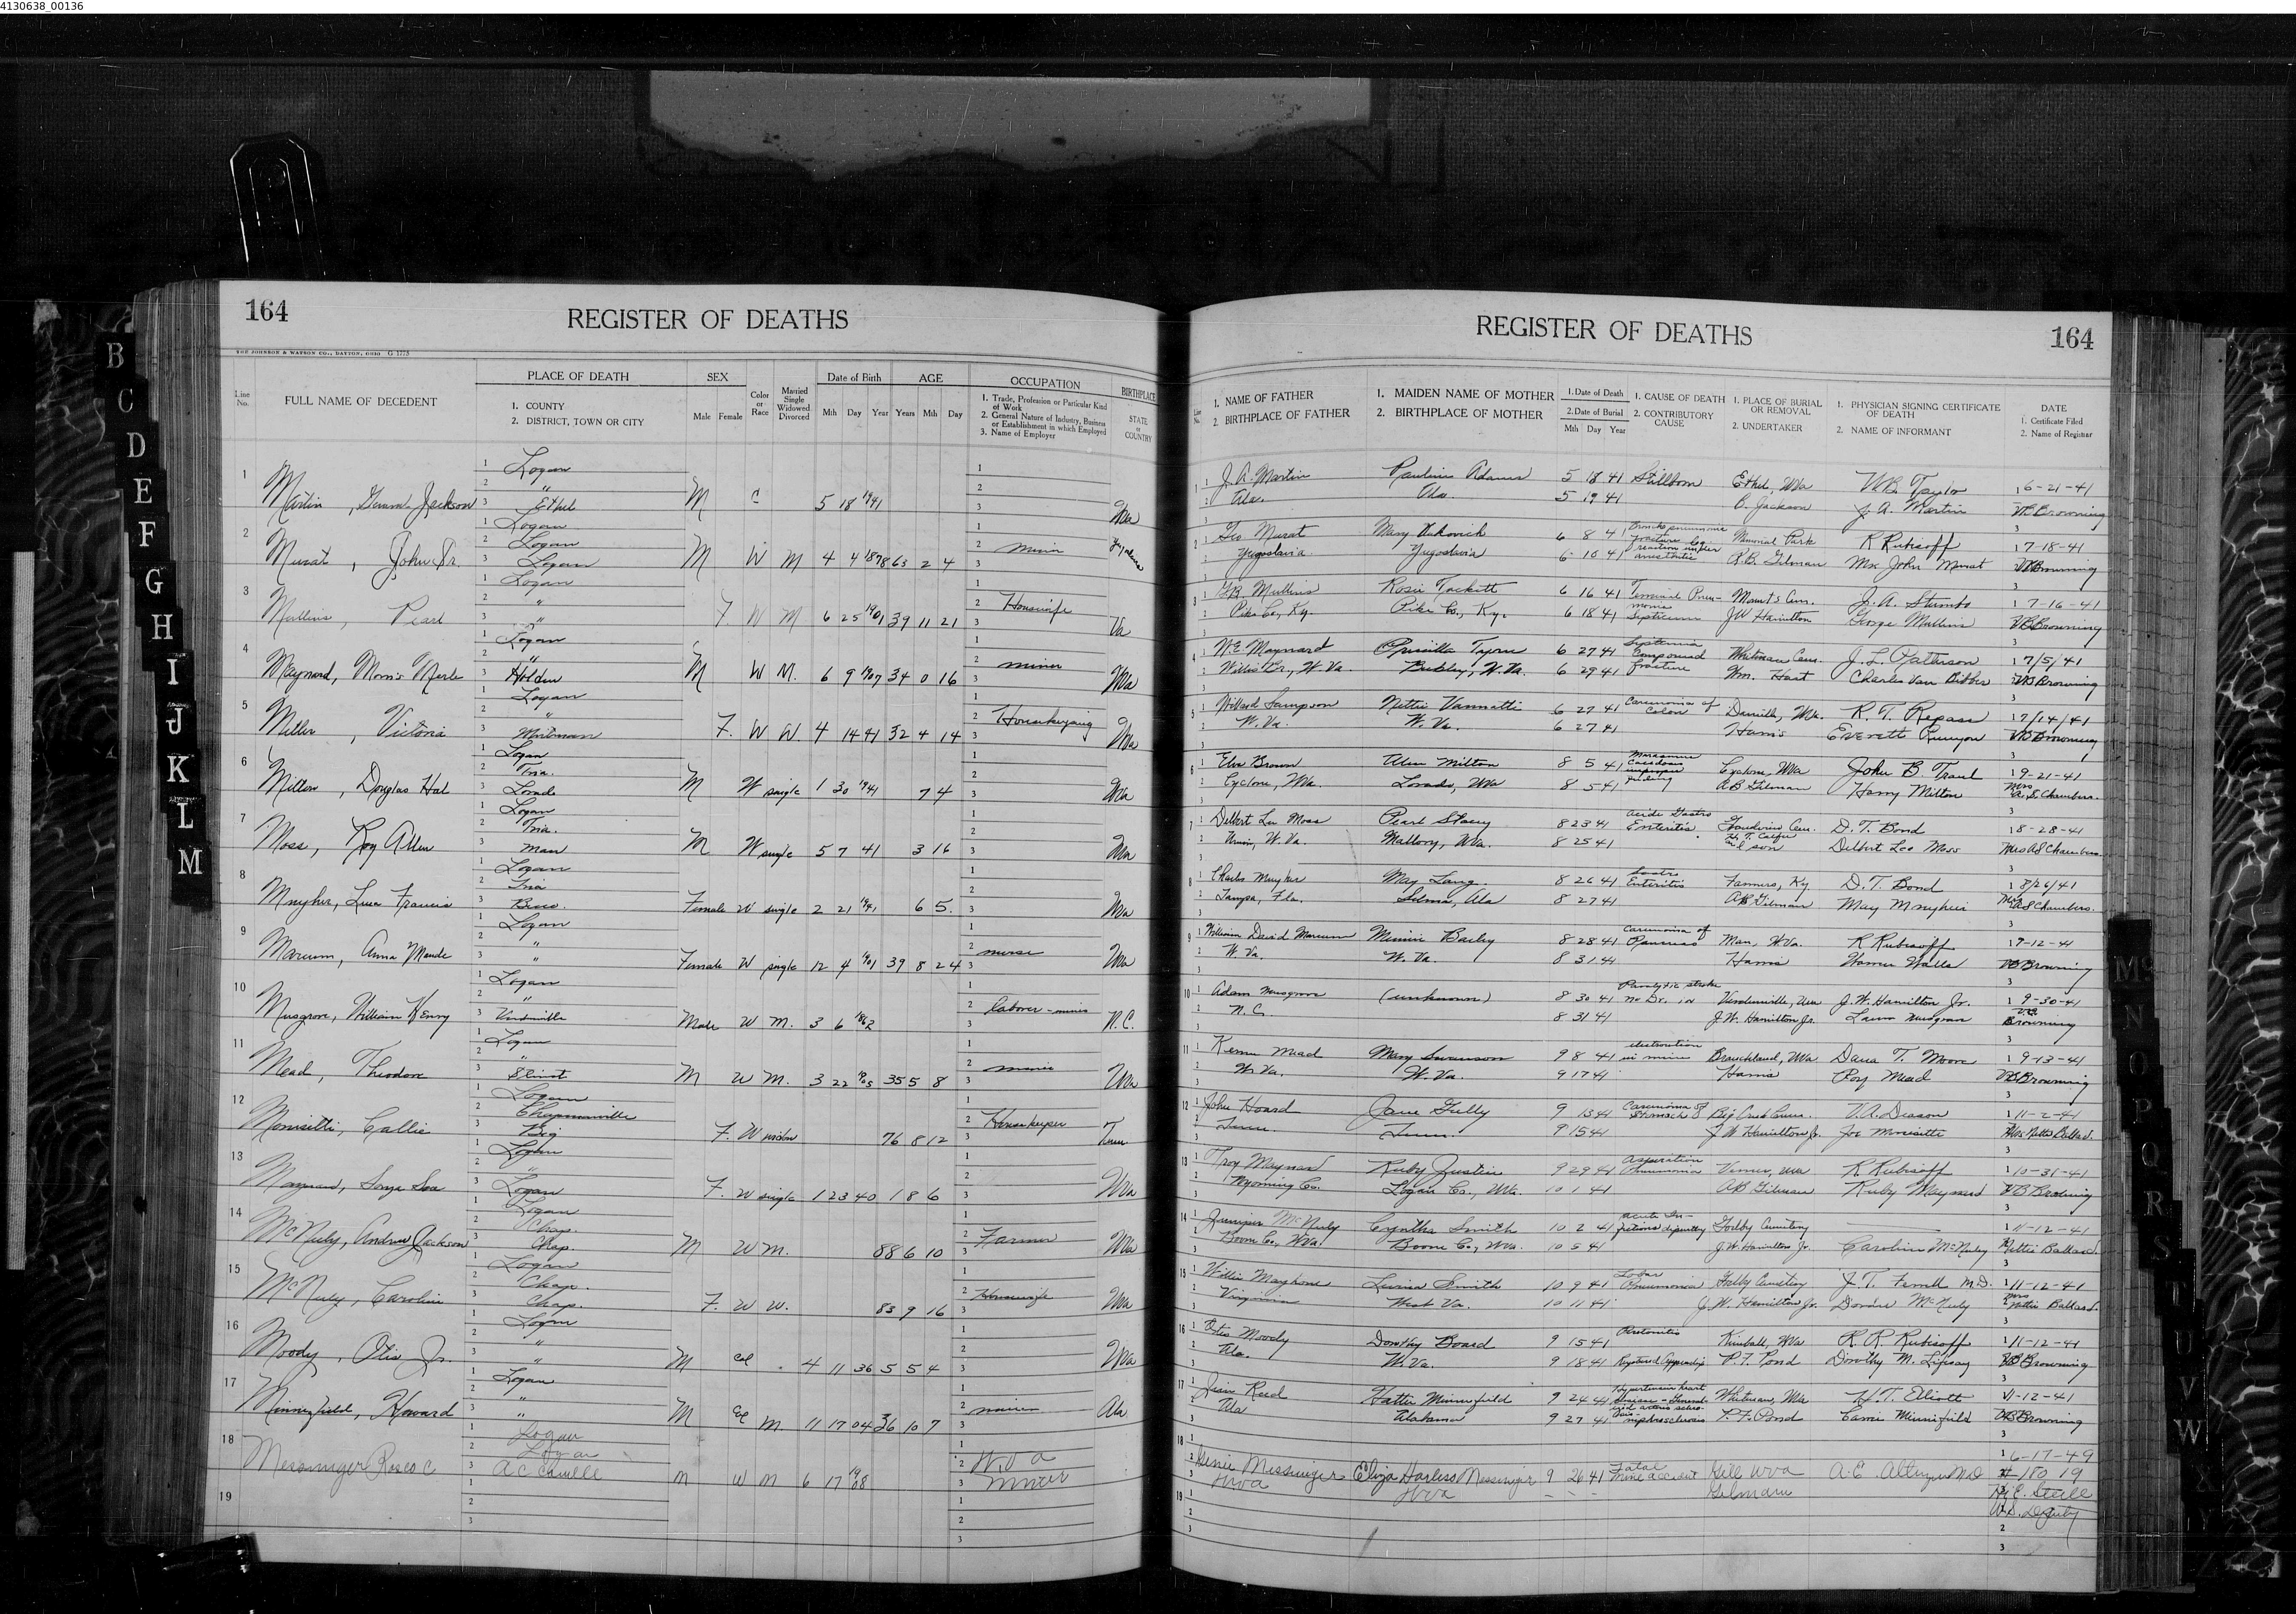 4130638_00136
164 REGISTER OF DEATHS
THE JOHNSON & WATSON CO., DAYTON, OHIO G 1775
Line No. FULL NAME OF DECEDENT PLACE OF DEATH 1. COUNTY 2. DISTRICT, TOWN OR CITY SEX Male Female Color or Race Married Single Widowed Divorced Date of Birth Mth Day Year AGE Years Mth Day OCCUPATION 1. Trade, Profession or Particular Kind of Work 2. General Nature of Industry, Business or Establishment in which Employed 3. Name of Employer BIRTHPLACE STATE or COUNTRY
1 Martin, Jackson Logan " Ethel M C 5 18 1941 Wva
2 Murat, John Sr. Logan Logan Logan M W M 4 4 1878 63 2 4 miner Yugoslavia
3 Mullins, Pearl Logan " " F. W M 6 25 1901 39 11 21 Housewife Va
4 Maynard, Morris Merle Logan " Holden M W M. 6 9 1907 34 0 16 miner Wva
5 Miller, Victoria Logan " F. W W. 4 14 41 32 4 14 Housekeeping Wva
6 Milton, Douglas Hal Logan Tria. Lorado M W single 1 30 1941 7 4 Wva
7 Moss, Roy Allen Logan Tria. Man M W single 5 7 41 3 16 Wva
8 Francis Logan Tria Female W single 2 21 1941 6 5 Wva
9 Marcum, Anna Maude Logan " " Female W single 12 4 1901 39 8 24 nurse Wva
10 Musgrove, William Henry Logan " Verdunville Male W M. 3 6 1862 laborer - mines N.C.
11 Mead, Theodore Logan " M W M. 3 22 1905 35 5 8 miner Wva
12 Morrisette, Callie Logan Chapmanville F. W widow 76 8 12 Housekeeper Tenn
13 Maynard, Sonya Logan " Logan F. W single 1 23 40 1 8 6 Wva
14 McNeely, Andrew Jackson Logan Chap. Chap. M W M. 88 6 10 Farmer Wva
15 McNeely, Caroline Logan Chap. Chap. F. W W. 83 9 16 Housewife Wva
16 Moody, Otis Jr. Logan " " M Col 4 11 36 5 5 4 Wva
17 Minnifield, Howard Logan " " M Col M 11 17 04 36 10 7 miner Ala
18 Messinger Rosco C Logan Logan M W M 6 17 1908 W.Va miner
19
REGISTER OF DEATHS 164
Line No. 1. NAME OF FATHER 2. BIRTHPLACE OF FATHER 1. MAIDEN NAME OF MOTHER 2. BIRTHPLACE OF MOTHER 1. Date of Death 2. Date of Burial Mth Day Year 1. CAUSE OF DEATH 2. CONTRIBUTORY CAUSE 1. PLACE OF BURIAL OR REMOVAL 2. UNDERTAKER 1. PHYSICIAN SIGNING CERTIFICATE OF DEATH 2. NAME OF INFORMANT DATE 1. Certificate Filed 2. Name of Registrar
1 J. A. Martin Pauline Adams 5 18 41 Stillborn Ethel, Wva W.B. Taylor 6-21-41
Ala. Ala. 5 19 41 C. Jackson J. A. Martin Browning
2 Geo Murat Mary 6 8 41 Broncho pneumonia fracture leg Memorial Park R Rubisoff 7-18-41
Yugoslavia Yugoslavia 6 10 41 reaction under anesthetic R.B. Gilman Mrs John Murat Browning
3 G.B. Mullins Rosie Tackett 6 16 41 Terminal Pneumonia J. A. Stumbo 7-16-41
Pike Co, Ky. Pike Co., Ky. 6 18 41 JW Hamilton George Mullins Browning
4 W.E. Maynard Priscilla 6 27 41 Compound fracture Whitman Cem. J. L. Patterson 7/5/41
W. Va. W. Va. 6 29 41 Wm. Hart Charles Van Bibber Browning
5 Willard Sampson Nettie Vannatter 6 27 41 Carcinoma of Colon Danville, Wva. R. T. Repass 7/14/41
W. Va. W. Va. 6 27 41 Harris Everett Runyon Browning
6 Elva Brown Milton 8 5 41 improper feeding Cyclone, Wva John B. Traul 9-21-41
Cyclone, Wva. Lorado, Wva 8 5 41 AB Gilman Harry Milton Mrs A. S. Chambers.
7 Delbert Lee Moss Pearl Stacy 8 23 41 Gastro Enteritis Cem. D. T. Bond 8-28-41
W. Va. Mallory, Wva. 8 25 41 & son Delbert Leo Moss Mrs AS Chambers
8 Charles May Lang 8 26 41 Gastro Enteritis Farmers, Ky D. T. Bond 8/26/41
Tampa, Fla. Selma, Ala 8 27 41 AB Gilman May Mrs AS Chambers.
9 William David Marcum Minnie Bailey 8 28 41 Carcinoma of Pancreas Man, W.Va. R Rubisoff 9-12-41
W. Va. W. Va. 8 31 41 Harris Browning
10 Adam Musgrove (unknown) 8 30 41 Paralytic stroke no Dr. in Verdunville, Wva J. W. Hamilton Jr. 9-30-41
N.C. 8 31 41 J.W. Hamilton Jr. Laura Musgrove Browning
11 Mead Mary Swanson 9 8 41 electrocution in mines Branchland, Wva Dana T. Moore 9-13-41
W. Va. W. Va. 9 17 41 Harris Roy Mead Browning
12 John Hoard Jane Gully 9 13 41 Carcinoma of Stomach Big Creek V.A. Deason 11-2-41
Tenn. Tenn. 9 15 41 J W Hamilton Jr. Joe Morrisette Mrs Nettie Ballard.
13 Troy Maynard Ruby Justice 9 29 41 Aspiration Pneumonia Verner, Wva R Rubisoff 10-31-41
Wyoming Co. Logan Co., Wva. 10 1 41 AB Gilman Ruby Maynard Browning
14 Juniper McNeely Cyntha Smith 10 2 41 Cemetery 11-12-41
Boone Co., Wva. Boone Co., Wva. 10 5 41 J.W. Hamilton Jr. Caroline McNeely Nettie Ballard.
15 Willie Maghone Smith 10 9 41 Lobar Pneumonia Cemetery J. T. Ferrell M.D. 11-12-41
Virginia West Va. 10 11 41 J. W. Hamilton Jr. McNeely Mrs Nettie Ballard.
16 Otis Moody Dorothy Board 9 15 41 Peritonitis Kimball, Wva R. R. Rubisoff 11-12-41
Ala. W.Va. 9 18 41 Ruptured Appendix P. F. Pond Dorothy M. Lipsay Browning
17 Reed Hattie Minnifield 9 24 41 Hypertensive heart disease Whitman, Wva H. T. Elliott 11-12-41
Ala Alabama 9 27 41 nephrosclerosis P. F. Pond Minnifield Browning
18 Messinger Eliza Harless Messinger 9 26 41 Fatal mine accident Gill Wva A. E. M.D 6-17-49
Wva Wva - - - Gilman # 180 19
Steele
Deputy
19
B C D E F G H I J K L M
Mc N O P Q R S T U V W X Y Z